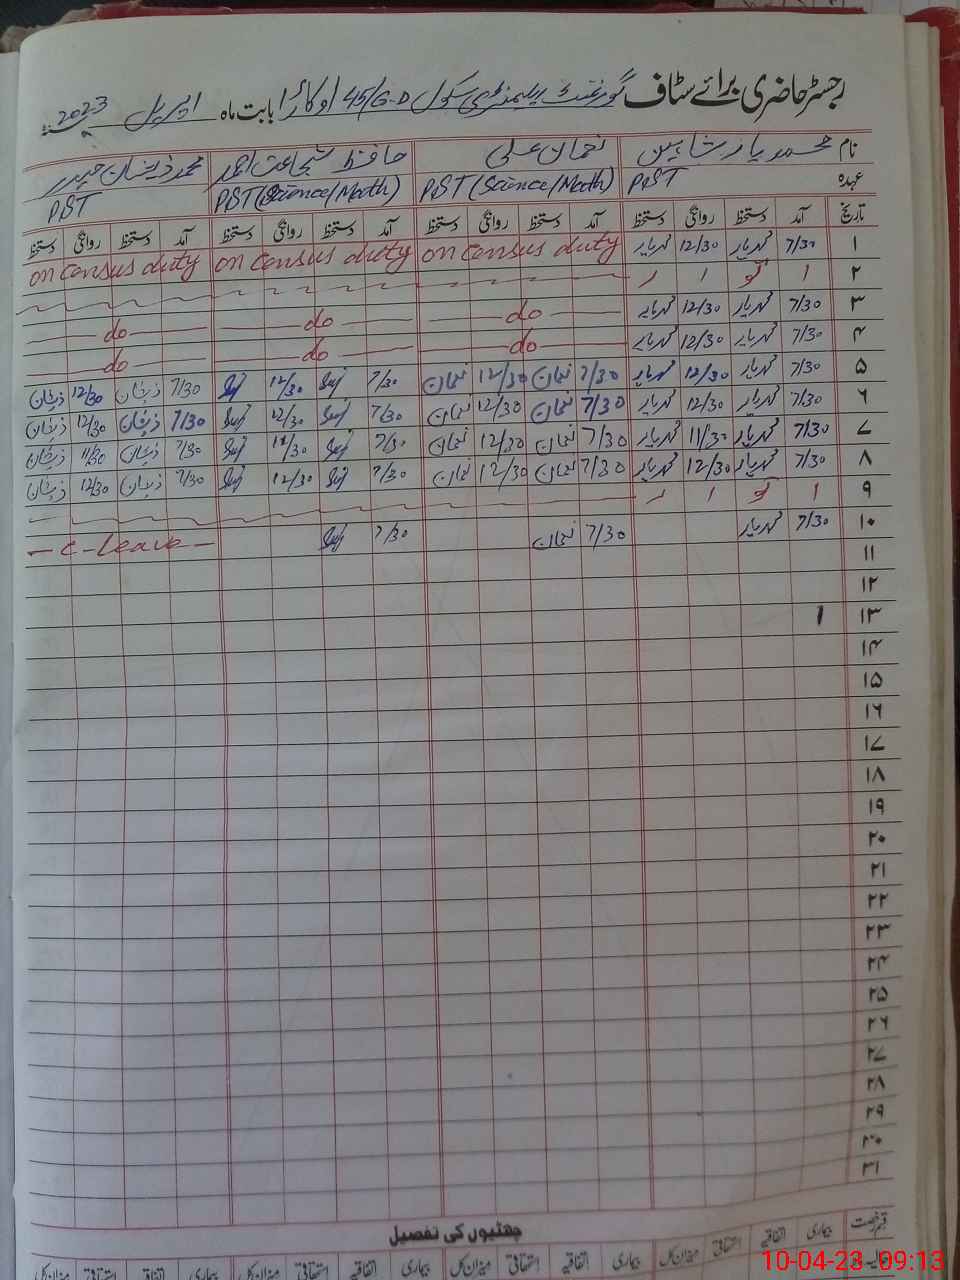 رجسٹر حاضری برائے سٹاف گورنمنٹ ایلیمنٹری سکول 45/G.D اوکاڑا بابت ماہ اپریل 2023
نام محمد یار شاہین نعمان علی حافظ شجاعت احمد محمد ذیشان حیدر
عہدہ PST PST (Science/Math) PST (Science/Math) PST
تاریخ آمد دستخط روانگی دستخط آمد دستخط روانگی دستخط آمد دستخط روانگی دستخط آمد دستخط روانگی دستخط
۱ 7/30 12/30 on census duty on census duty on census duty
۲
۳ 7/30 12/30 do do do
۴ 7/30 12/30 do do do
۵ 7/30 12/30 7/30 نعمان 12/30 نعمان 7/30 12/30 7/30 ذیشان 12/30 ذیشان
۶ 7/30 12/30 7/30 نعمان 12/30 نعمان 7/30 12/30 7/30 ذیشان 12/30 ذیشان
۷ 7/30 11/30 7/30 نعمان 12/30 نعمان 7/30 11/30 7/30 ذیشان 11/30 ذیشان
۸ 7/30 12/30 7/30 نعمان 12/30 نعمان 7/30 12/30 7/30 ذیشان 12/30 ذیشان
۹
۱۰ 7/30 7/30 نعمان 7/30 c-leave
۱۱
۱۲
۱۳
۱۴
۱۵
۱۶
۱۷
۱۸
۱۹
۲۰
۲۱
۲۲
۲۳
۲۴
۲۵
۲۶
۲۷
۲۸
۲۹
۳۰
۳۱
چھٹیوں کی تفصیل
قسم رخصت بیماری اتفاقیہ استحقاقی میزان کل بیماری اتفاقیہ استحقاقی میزان کل بیماری اتفاقیہ استحقاقی میزان کل بیماری اتفاقیہ استحقاقی میزان کل
10-04-23 09:13